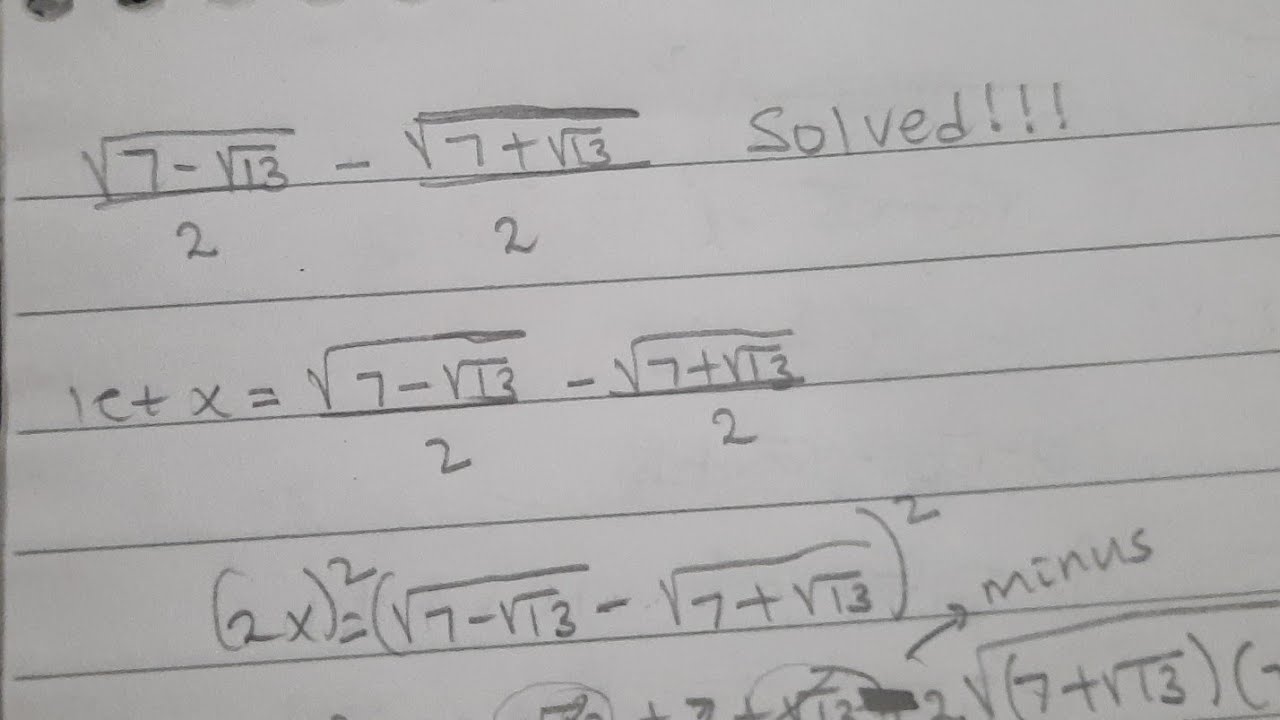 √(7-√13)/2 - √(7+√13)/2 Solved!!!
let x = √(7-√13)/2 - √(7+√13)/2
(2x)²=(√(7-√13) - √(7+√13))²
minus
+ 7 + √13 - 2√((7+√13)(7